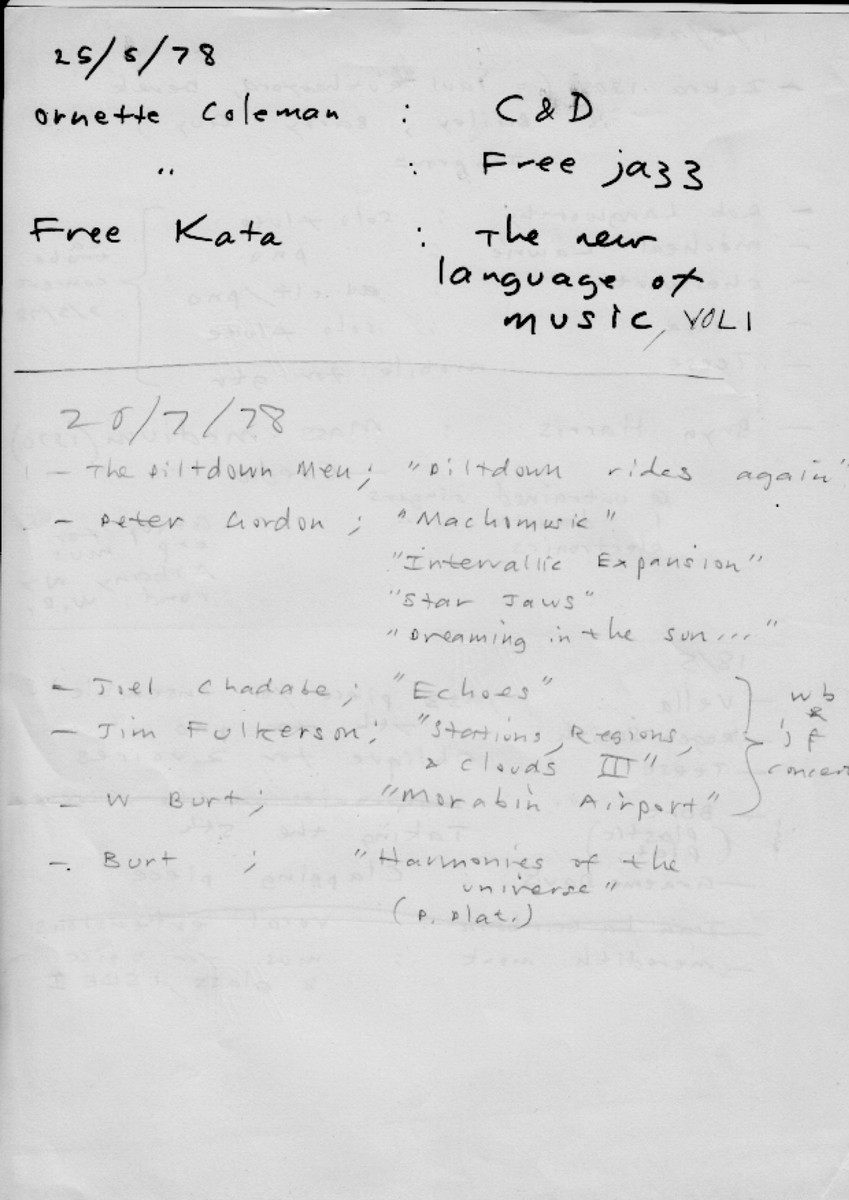 25/5/78
Ornette Coleman : C & D
" : Free jazz
Free Kata : The new
language of
music, VOL 1
/7/78
- The Piltdown Men; "Piltdown rides again"
- Peter Gordon; "Machomusic"
"Intervallic Expansion"
"Star Jaws"
"Dreaming in the sun..."
- Joel Chadabe; "Echoes"
- Jim Fulkerson; "Stations, Regions,
& Clouds III"
- W Burt; "Morabin Airport"
wb
&
jf
concert
- Burt ; "Harmonies of the
universe"
(P. plat.)